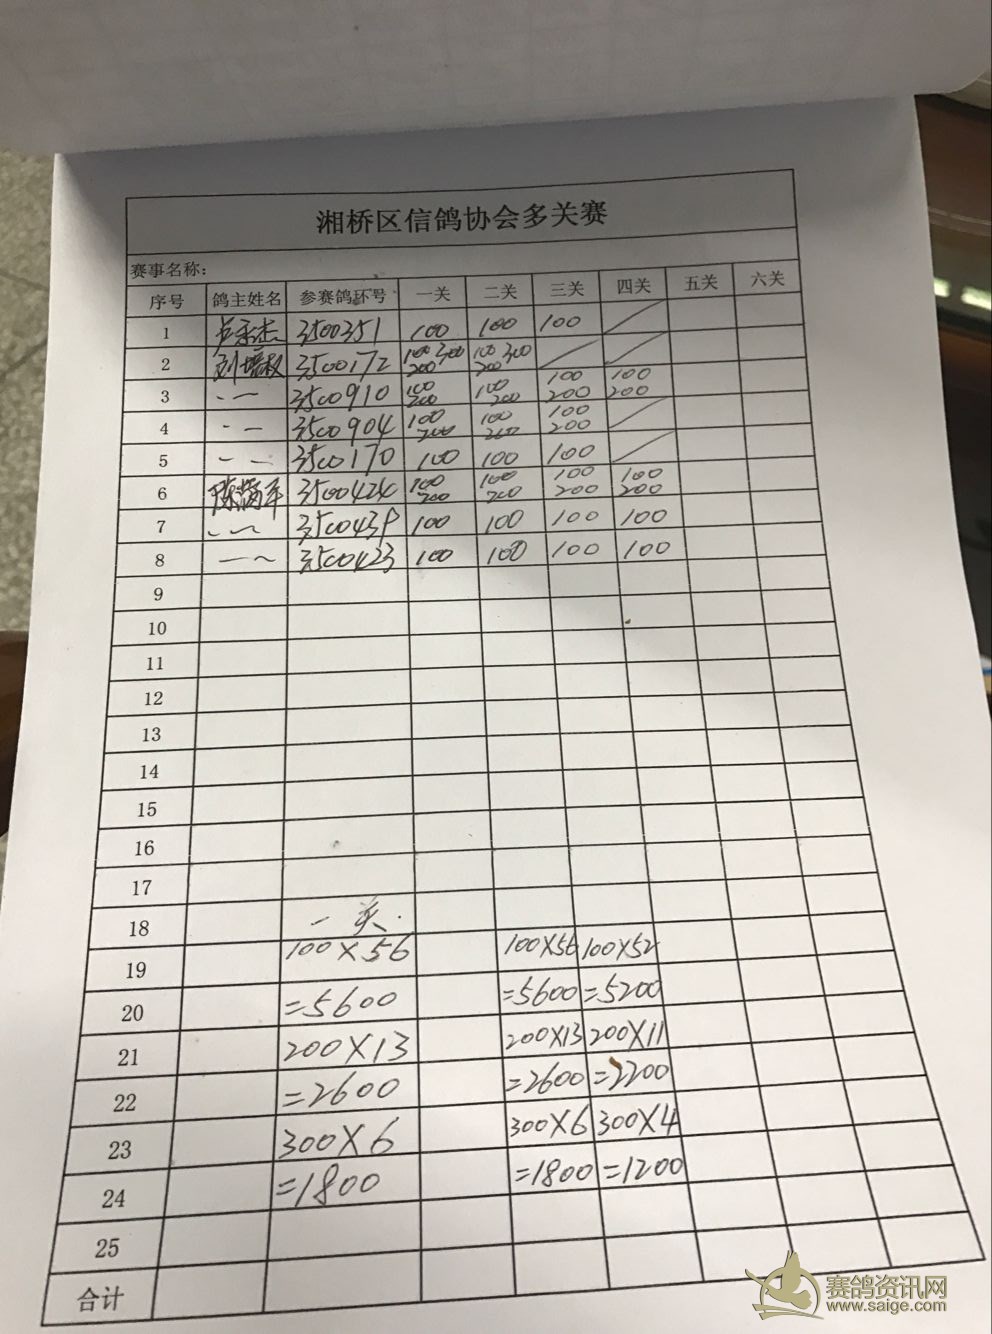 湘桥区信鸽协会多关赛
赛事名称:
序号 鸽主姓名 参赛鸽环号 一关 二关 三关 四关 五关 六关
1 3500351 100 100 100
2 3500172 100 300 200 100 300 200
3 3500910 100 200 100 200 100 200 100 200
4 3500904 100 200 100 200 100 200
5 3500170 100 100 100
6 3500424 100 200 100 200 100 200 100 200
7 100 100 100 100
8 3500423 100 100 100 100
9
10
11
12
13
14
15
16
17
18 一关.
19 100×56 100×56 100×52
20 =5600 =5600 =5200
21 200×13 200×13 200×11
22 =2600 =2600 =2200
23 300×6 300×6 300×4
24 =1800 =1800 =1200
25
合计
赛鸽资讯网
www.saige.com